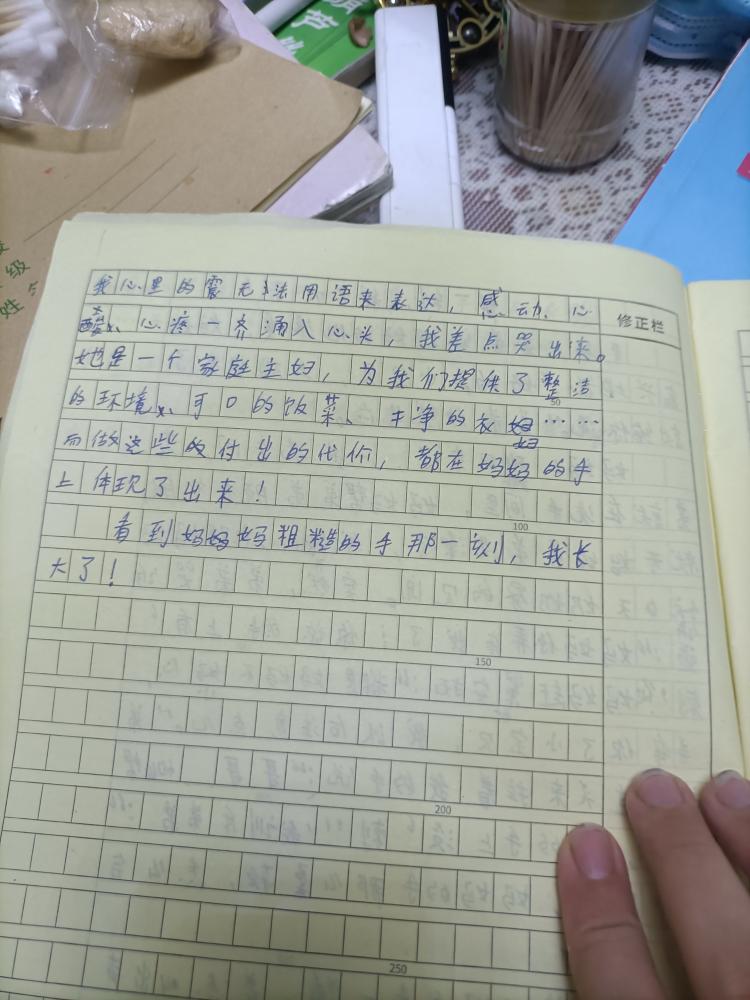 葫芦
级
姓
修正栏
我心里的震无法用语来表达，感动、心
酸、心疼一齐涌入心头，我差点哭出来。
她是一个家庭主妇，为我们提供了整洁
50
的环境、可口的饭菜、干净的衣……
而做这些的付出的代价，都在妈妈的手
上体现了出来！
100
看到妈妈妈粗糙的手那一刻，我长
大了！
150
200
250